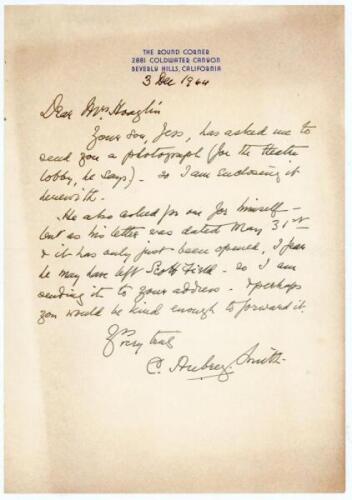 THE ROUND CORNER
2881 COLDWATER CANYON
BEVERLY HILLS, CALIFORNIA
3 Dec 1944
Dear Mrs Hoaglin
Your son, Jess, has asked me to
send you a photograph (for the theatre
lobby, he says). - so I am enclosing it
herewith.
He also asked for one for himself -
but as his letter was dated May 31st
& it has only just been opened, I fear
he may have left Scott Field - so I am
sending it to your address - & perhaps
you would be kind enough to forward it.
Yrs very truly
C. Aubrey Smith.